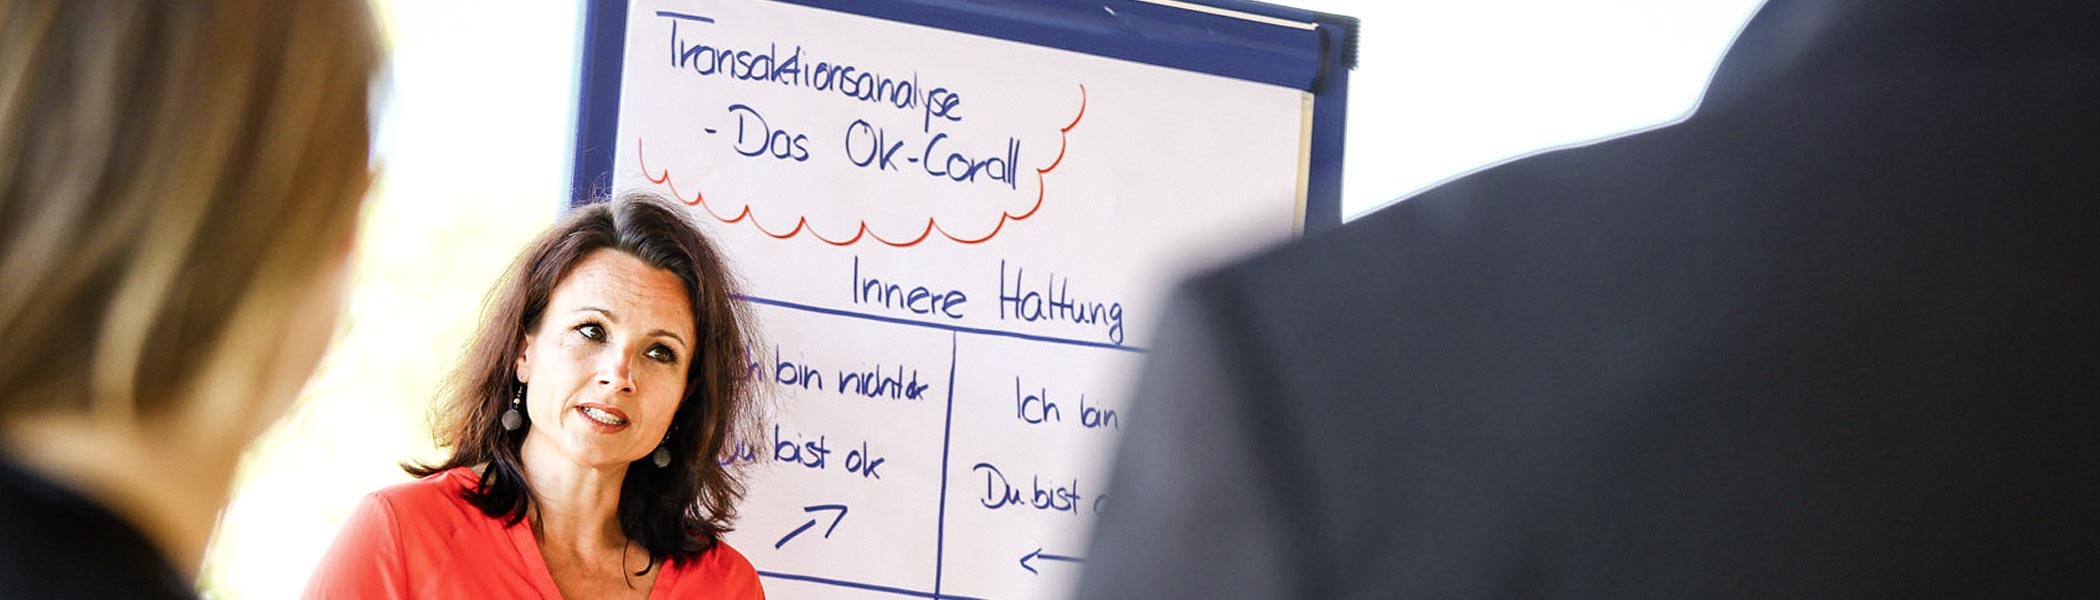 Transaktionsanalyse
- Das Ok-Corall
Innere Haltung
bin nicht ok
bist ok
Ich bin
Du bist